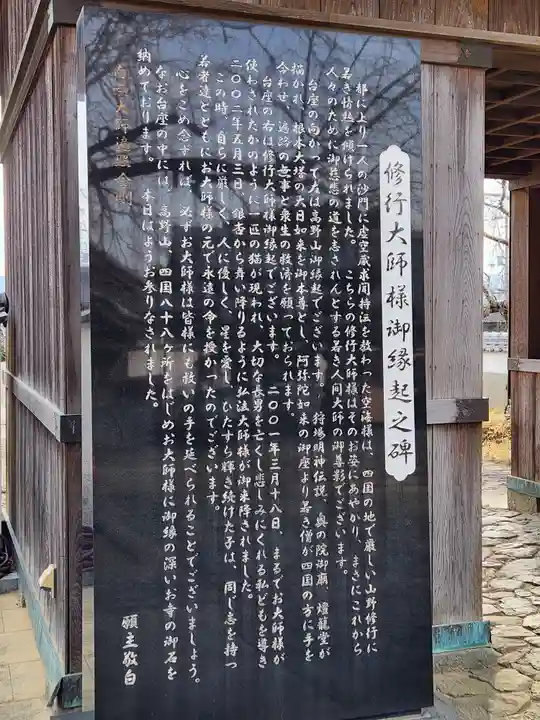 修行大師様御縁起之碑
都に上り一人の沙門に虚空蔵求聞持法を教わった空海様は、四国の地で厳しい山野修行に
若き情熱を傾けられました。こちらの修行大師様はそのお姿にあやかり、まさにこれから
人々のために御慈悲の道を志されんとする若き人間大師の御尊影でございます。
台座の向かって左は高野山御縁起でございます。狩場明神伝説、奥の院御廟、燈籠堂が
描かれ、根本大塔の大日如来を御本尊とし、阿弥陀如来の御座より若き僧が四国の方に手を
合わせ、遍路の無事と衆生の救済を願っておられます。
台座の右は修行大師様御縁起でございます。二〇〇一年三月十八日、まるでお大師様が
使わされたかのように一匹の猫が現われ、大切な長男を亡くし悲しみにくれる私どもを導き
二〇〇二年五月三日、銀杏から舞い降りるように弘法大師様が御来降されました。
この時、自らに厳しく、人に優しく、星を愛し、ひたすら輝き続けた子は、同じ志を持つ
若者達とともにお大師様の元で永遠の命を授かったのでございます。
心をこめ念ずれば、必ずお大師様は皆様にも救いの手を延べられることでございましょう。
なお台座の中には、高野山、四国八十八ヶ所をはじめお大師様に御縁の深いお寺の御石を
納めております。本日はようお参りなされました。
南無大師遍照金剛
願主敬白